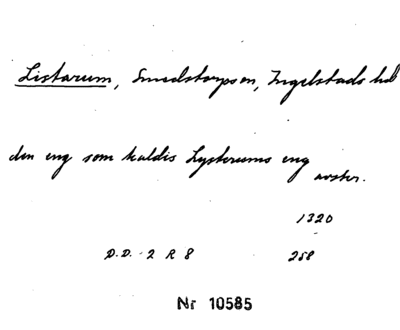 Listarum, Smedstorps sn, Ingelstads hd
den eng som kaldis Lysterums eng
norter.
1320
D.D. 2 R 8 258
Nr 10585